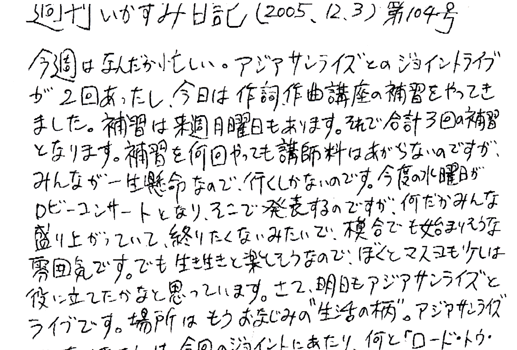 週刊いかすみ日記(2005、12、3)第104号
今週はなんだか忙しい。アジアサンライズとのジョイントライブ
が2回あったし、今日は作詞作曲講座の補習をやってき
ました。補習は来週月曜日もあります。それで合計3回の補習
となります。補習を何回やっても講師料はあがらないのですが、
みんなが一生懸命なので、行くしかないのです。今度の水曜日が
ロビーコンサートとなり、そこで発表するのですが、何だかみんな
盛り上がっていて、終りたくないみたいで、模合でも始まりそうな
雰囲気です。でも生き生きと楽しそうなので、ぼくとマスヨも少しは
役に立てたかなと思っています。さて、明日もアジアサンライズと
ライブです。場所はもうおなじみの"生活の柄"。アジアサンライズ
今回のジョイントにあたり、何と「ロード・トゥ・